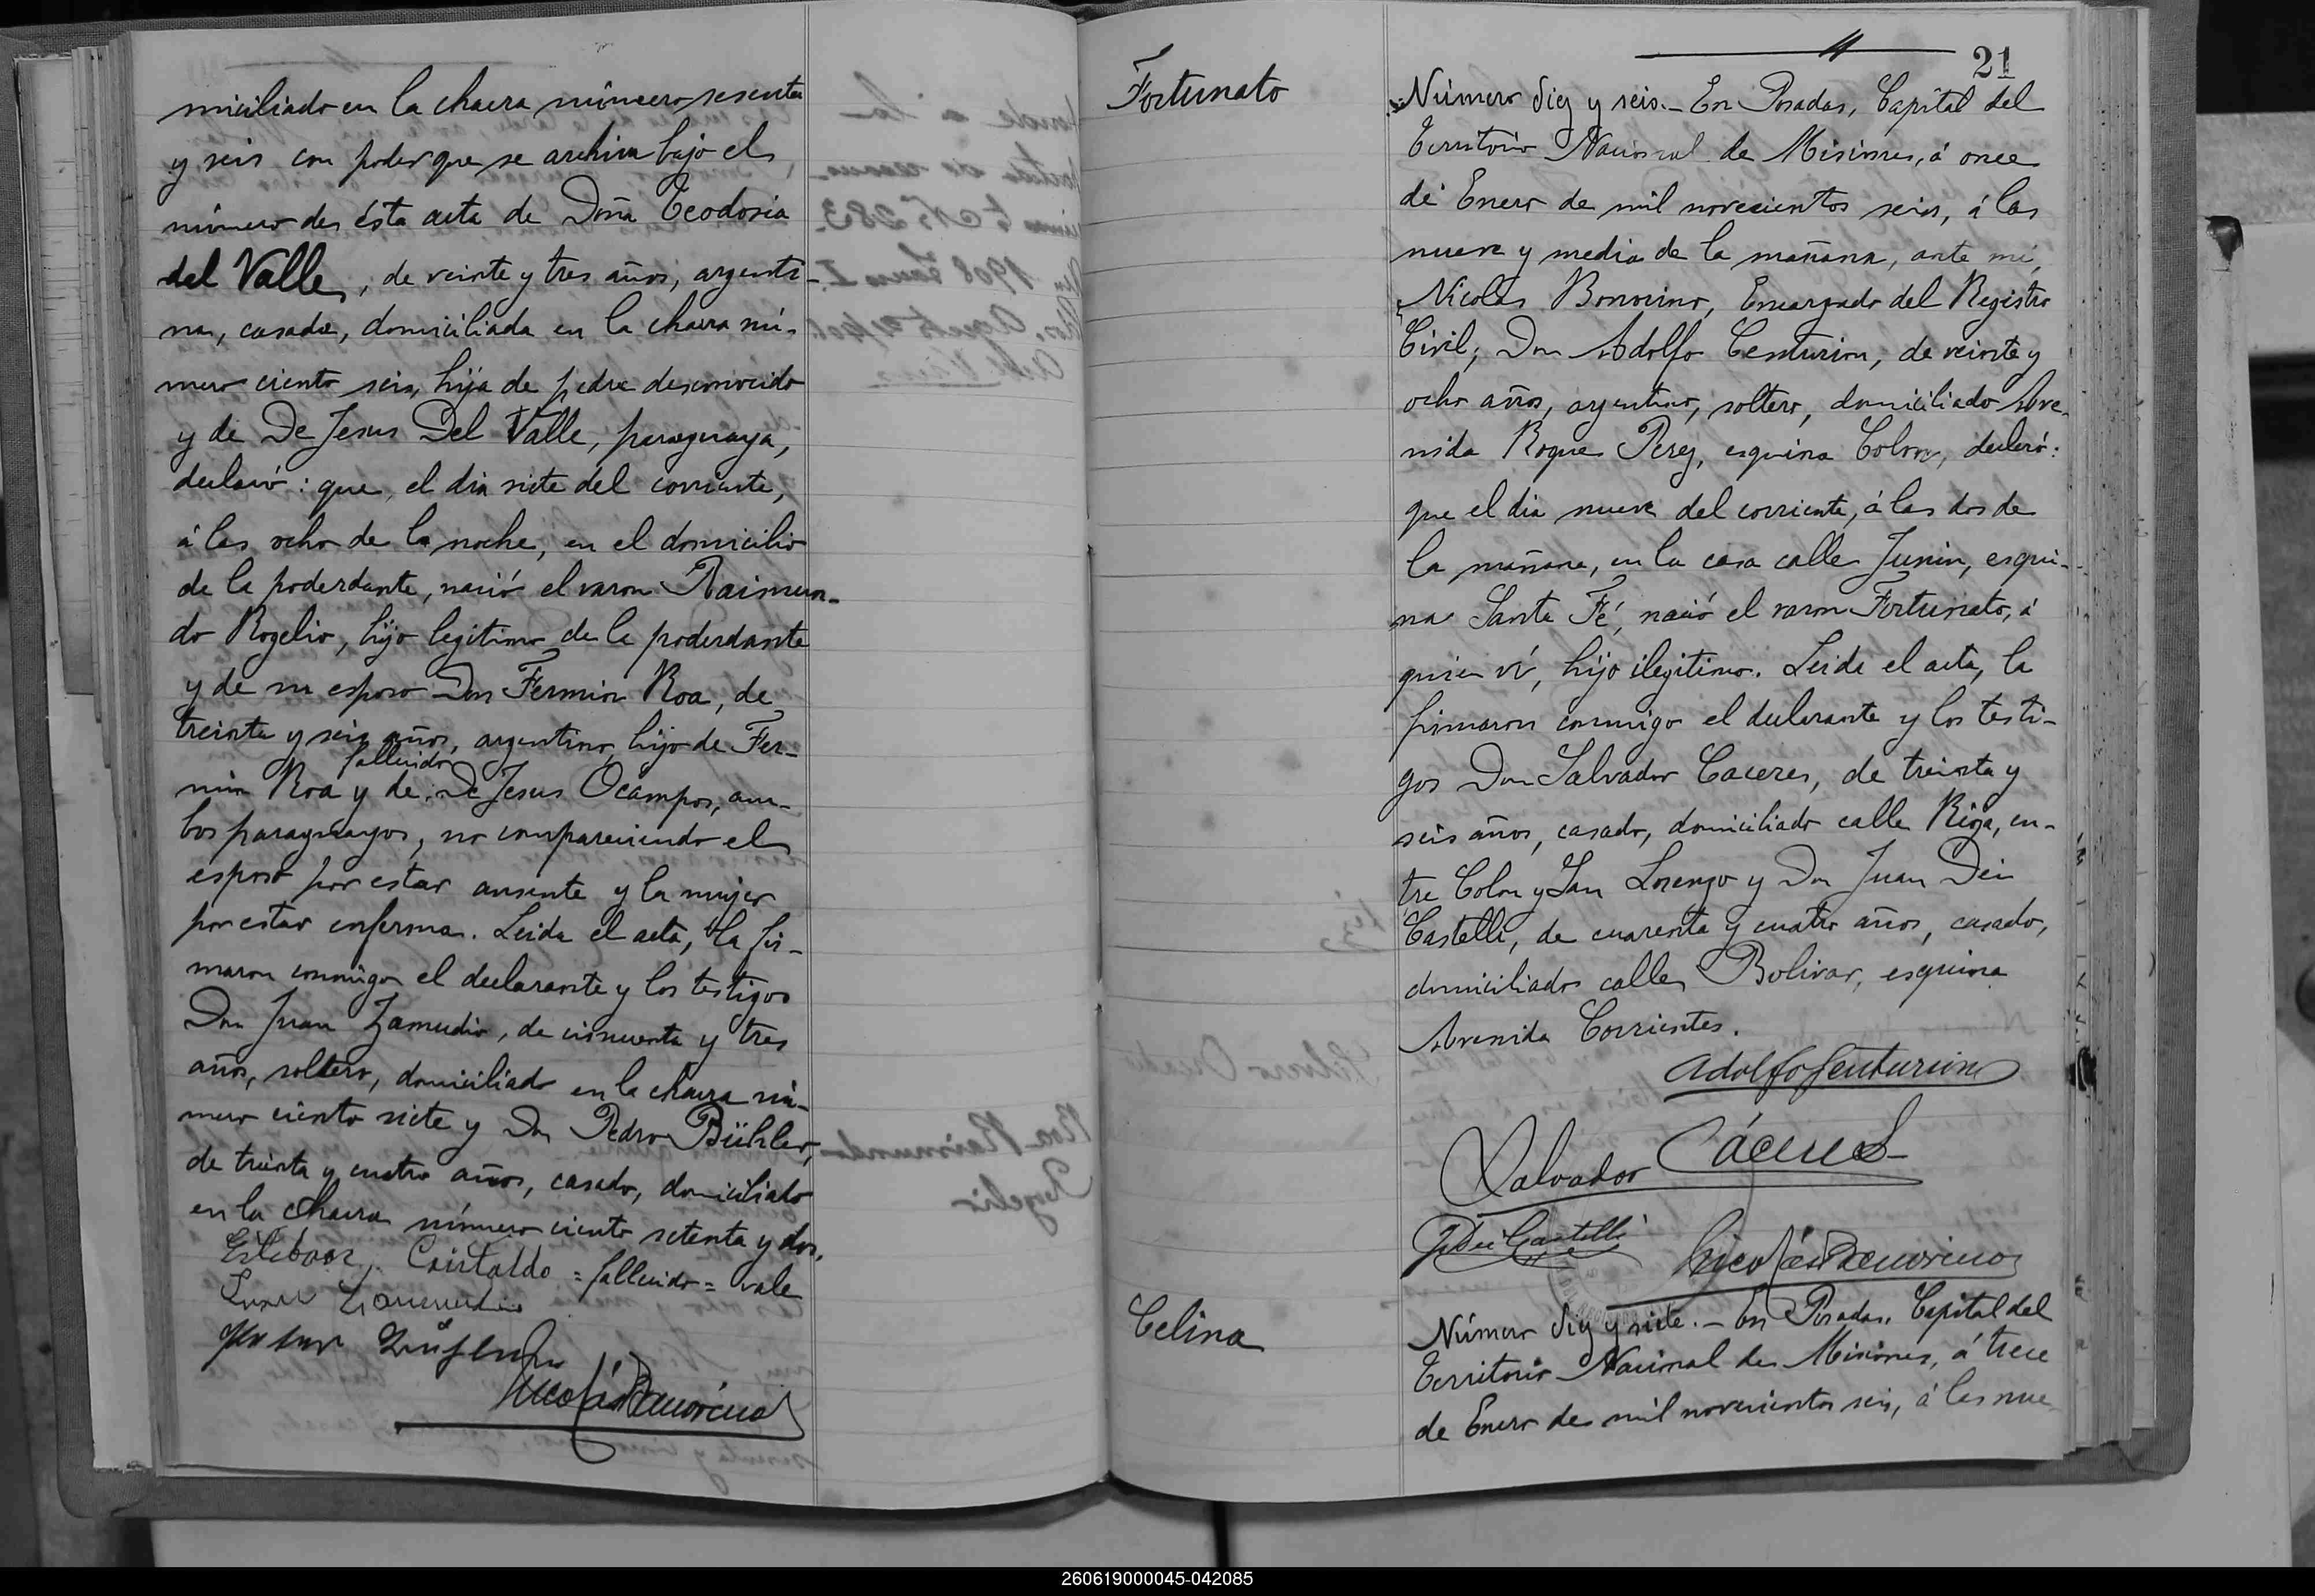 miciliado en la chacra número sesenta
y seis con poder que se archiva bajo el
número de ésta acta de Doña Teodosia
del Valle, de veinte y tres años, argenti-
na, casada, domiciliada en la chacra nú-
mero ciento seis, hija de padre desconocido
y de De Jesus Del Valle, paraguaya,
declaró: que, el dia siete del corriente,
á las ocho de la noche, en el domicilio
de la poderdante, nació el varon Raimun-
do Rogelio, hijo legitimo de la poderdante
y de su esposo Don Fermin Roa, de
treinta y seis años, argentino, hijo de Fer-
fallecido
min Roa y de De Jesus Ocampos, am-
bos paraguayos, no compareciendo el
esposo por estar ausente y la mujer
por estar enferma. Leida el acta, la fir-
maron conmigo el declarante y los testigos
Don Juan Zamudio, de cincuenta y tres
años, soltero, domiciliado en la chacra nú-
mero ciento siete y Don Pedro Bühler,
de treinta y cuatro años, casado, domiciliado
en la chacra número ciento setenta y dos.
Esteban Cristaldo = fallecido = vale
Juan Zamudio
Nicolás Bonorino
21
Fortunato
Número diez y seis.- En Posadas, Capital del
Territorio Nacional de Misiones, á once
de Enero de mil novecientos seis, á las
nueve y media de la mañana, ante mi,
Nicolas Bonorino, Encargado del Registro
Civil; Don Adolfo Centurion, de veinte y
ocho años, argentino, soltero, domiciliado Ave-
nida Roque Perez, esquina Colon, declaró:
que el dia nueve del corriente, á las dos de
la mañana, en la casa calle Junin, esqui-
na Santa Fé, nació el varon Fortunato, á
quien ví, hijo ilegitimo. Leida el acta, la
firmaron conmigo el declarante y los testi-
gos Don Salvador Caceres, de treinta y
seis años, casado, domiciliado calle Rioja, en-
tre Colon y San Lorenzo y Don Juan Dei
Castelli, de cuarenta y cuatro años, casado,
domiciliado calle Bolivar, esquina
Avenida Corrientes.
Adolfo Centurion
Salvador Cáceres
J Dei Castelli
Nicolás Bonorino
Celina
Número diez y siete.- En Posadas, Capital del
Territorio Nacional de Misiones, á trece
de Enero de mil novecientos seis, á las nue
260619000045-042085